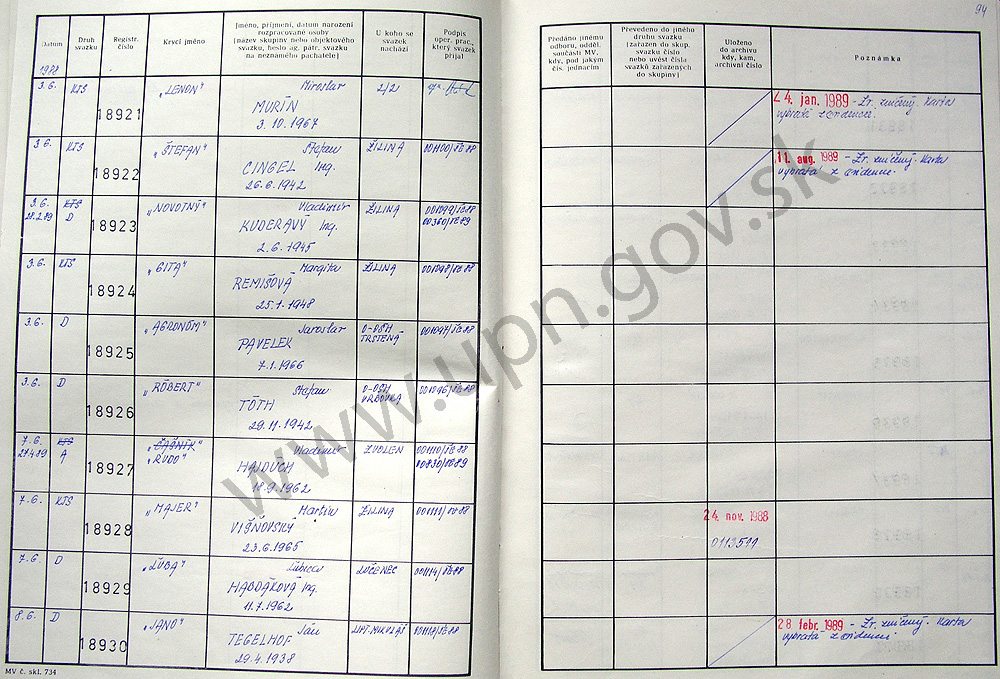 94
Datum
Druh svazku
Registr. číslo
Krycí jméno
Jméno, příjmení, datum narození
rozpracované osoby
(název skupiny nebo objektového
svazku, heslo ag. pátr. svazku
na neznámého pachatele)
U koho se
svazek
nachází
Podpis
oper. prac.,
který svazek
přijal
Předáno jinému
odboru, odděl.
součásti MV,
kdy, pod jakým
čís. jednacím
Převedeno do jiného
druhu svazku
(zařazen do skup.
svazku číslo
nebo uvést čísla
svazků zařazených
do skupiny)
Uloženo
do archivu
kdy, kam,
archivní číslo
Poznámka
1988
3.6. KTS 18921 „LENON" Miroslav
MURÍN
3. 10. 1967
24. jan. 1989 - Zv. zničený. Karta
vybratá z evidencie.
3.6. KTS 18922 „ŠTEFAN" Štefan ŽILINA 001100/ŠB 88
CINGEL Ing.
26. 6. 1942
11. aug. 1989 - Zv. zničený. Karta
vybratá z evidencie.
3.6. KTS 18923 „NOVOTNÝ" Vladimír ŽILINA 001099/ŠB 88
28.2.89 D KUDERAVÝ Ing. 00360/ŠB 89
2. 6. 1945
3.6. KTS 18924 „GITA" Margita ŽILINA 001098/ŠB 88
REMIŠOVÁ
25. 1. 1948
3.6. D 18925 „AGRONÓM" Jaroslav O-OSH 001097/ŠB 88
PAVELEK TRSTENÁ
7. 1. 1966
3.6. D 18926 „RÓBERT" Štefan O-OSH 001096/ŠB 88
TÓTH
29. 11. 1942
7.6. KTS 18927 „ČAŠNÍK" Vladimír ZVOLEN 001110/ŠB 88
A „RUDO" HAJDUCH 00830/ŠB 89
18. 9. 1962
7.6. KTS 18928 „MAJER" Martin ŽILINA 001111/ŠB 88
VIŠŇOVSKÝ
23. 6. 1965
24. nov. 1988
0113511
7.6. D 18929 „ĽUBA" Ľubica LUČENEC 001114/ŠB 88
HABDÁKOVÁ Ing.
11. 7. 1962
8.6. D 18930 „JANO" Ján LIPT. MIKULÁŠ
TEGELHOF
29. 4. 1938
28 febr. 1989 - Zv. zničený. Karta
vybratá z evidencie.
MV č. skl. 734
www.upn.gov.sk